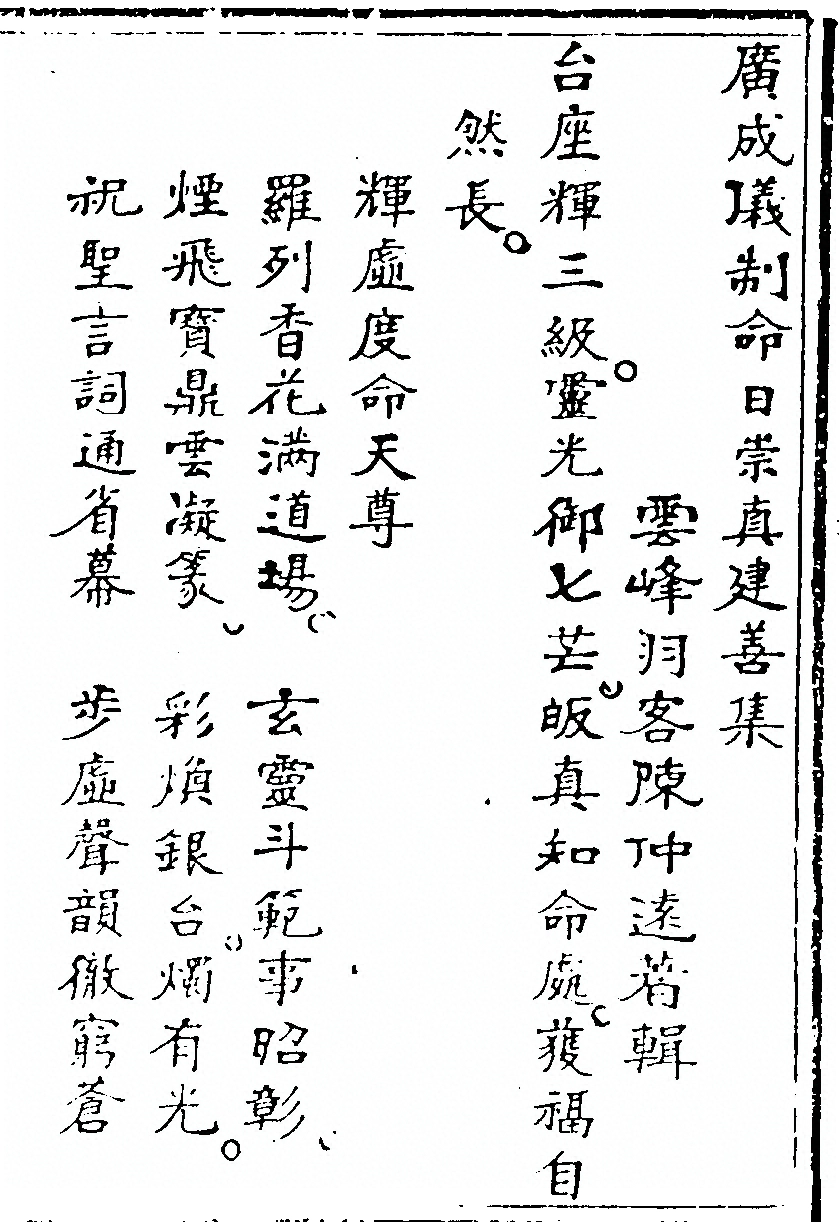 廣成儀制命日崇真建善集
雲峰羽客陳仲遠著輯
台座輝三級靈光御七芒皈真知命處獲福自
然長
輝虛度命天尊
羅列香花满道場 玄靈斗範事昭彰
煙飛寶鼎雲凝篆 彩煥銀台燭有光
祝聖言詞通省幕 步虛聲韻徹窮蒼